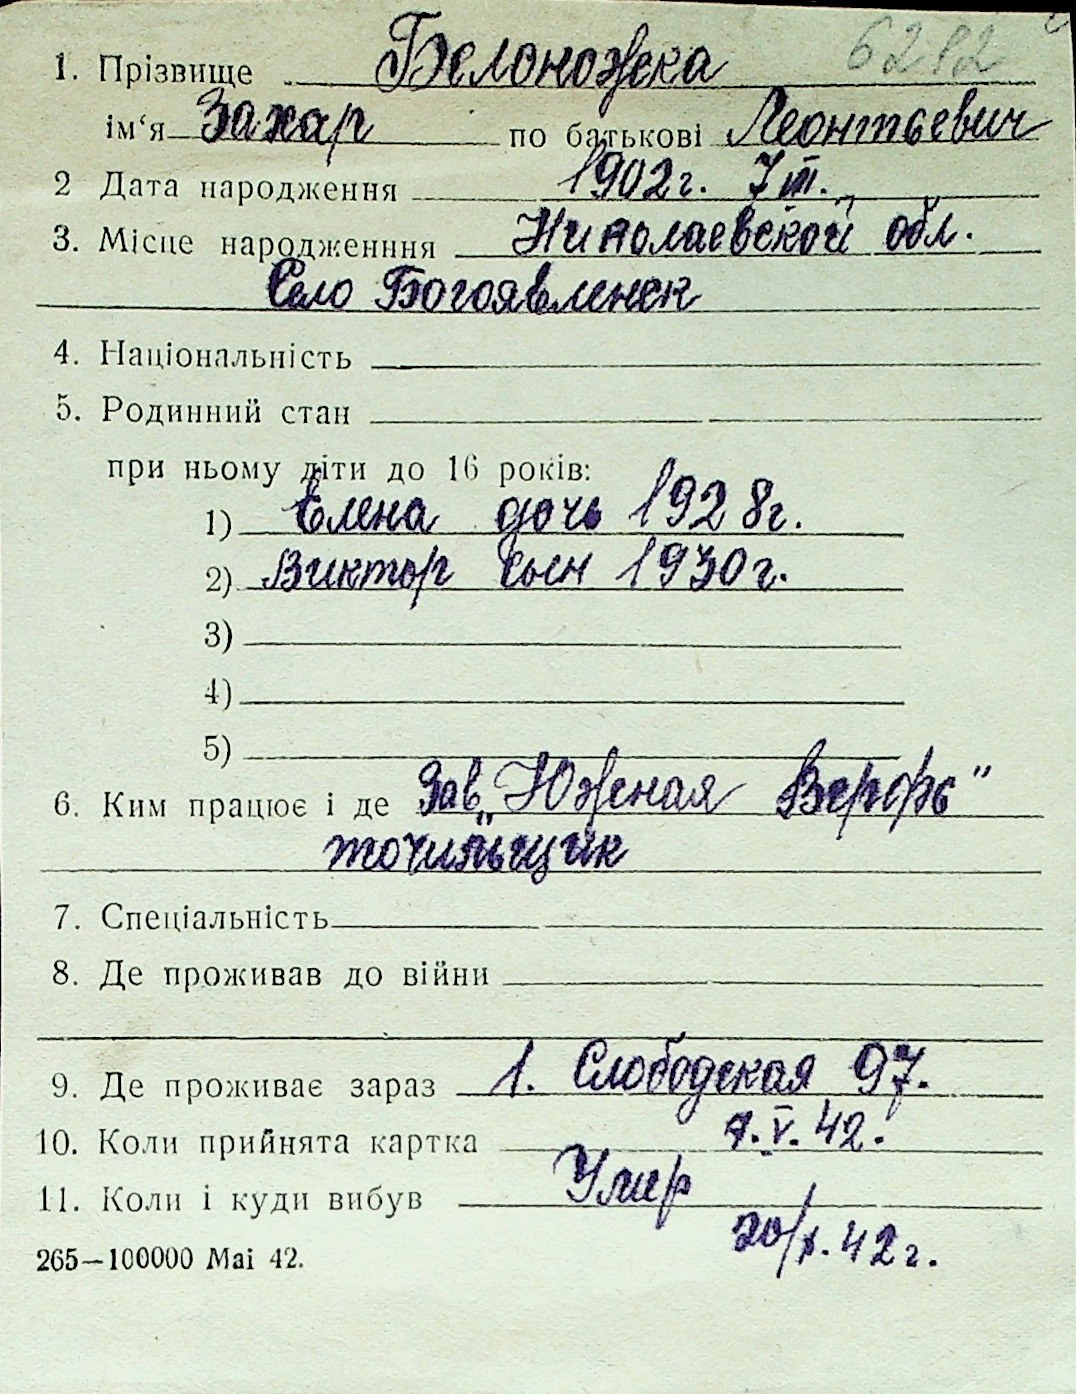 6212
1. Прізвище Белоножска
ім‘я Захар по батькові Леонтьевич
2 Дата народження 1902г. 7 III.
3. Місце народженння Николаевской обл.
Село Богоявленск
4. Національність
5. Родинний стан
при ньому діти до 16 років:
1) Елена дочь 1928г.
2) Виктор сын 1930г.
3)
4)
5)
6. Ким працює і де Зав. „Южная Верфь"
точильщик
7. Спеціальність
8. Де проживав до війни
9. Де проживає зараз 1. Слободская 97.
10. Коли прийнята картка 7.V.42.
11. Коли і куди вибув Умер
20/X.42г.
265—100000 Mai 42.